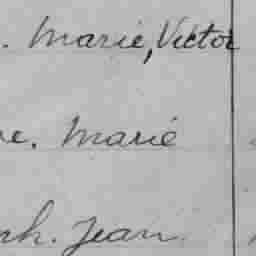 . Marie, Victor
ve. Marie
ph. Jean